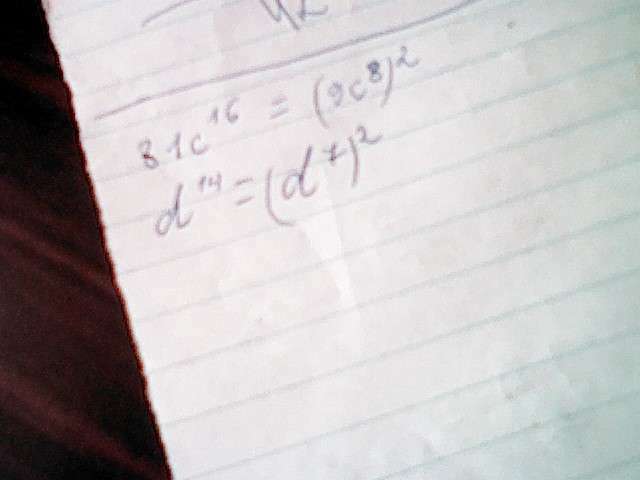 81c^16 = (9c^8)^2
d^14 = (d^7)^2